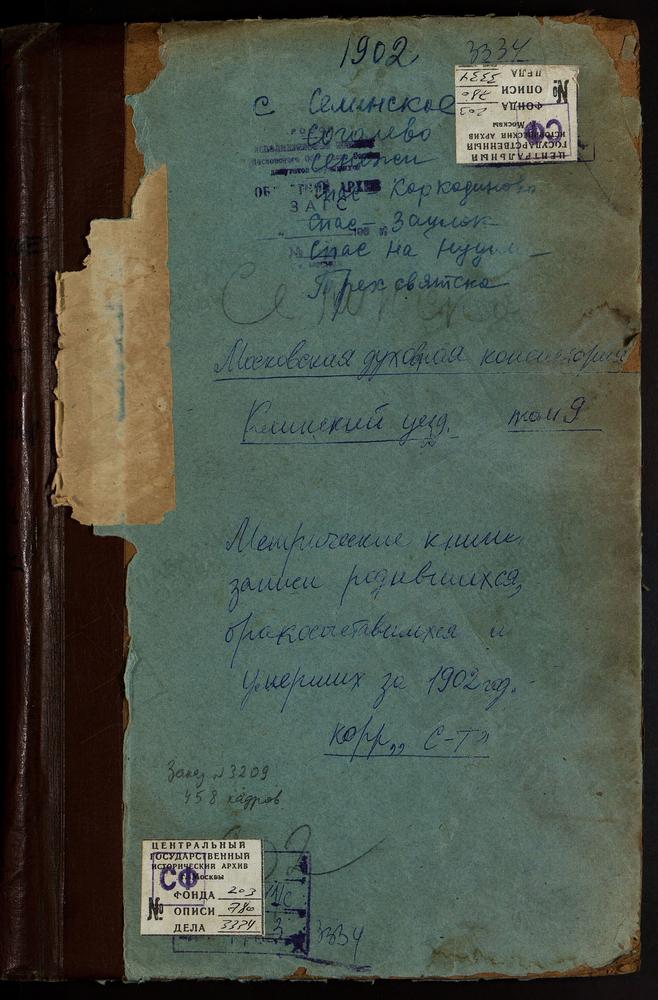 1902 3334
с Семинское
Соголево
Спас-Каркадинова
Спас-Заулок
Спас на Нудоли
Трехсвятско
ЦЕНТРАЛЬНЫЙ
ГОСУДАРСТВЕННЫЙ
ИСТОРИЧЕСКИЙ АРХИВ
Москвы
СФ
№ ФОНДА 203
ОПИСИ 780
ДЕЛА 3334
АРХИВ
ЗАГС
Московская духовная консистория
Клинский уезд. том 9
Метрические книги
записи родившихся,
бракосочетавшихся и
умерших за 1902 год.
корр„ С-Т"
Заказ №3209
458 кадров
ЦЕНТРАЛЬНЫЙ
ГОСУДАРСТВЕННЫЙ
ИСТОРИЧЕСКИЙ АРХИВ
г. Москвы
СФ
ФОНДА 203
№ ОПИСИ 780
ДЕЛА 3334
3334